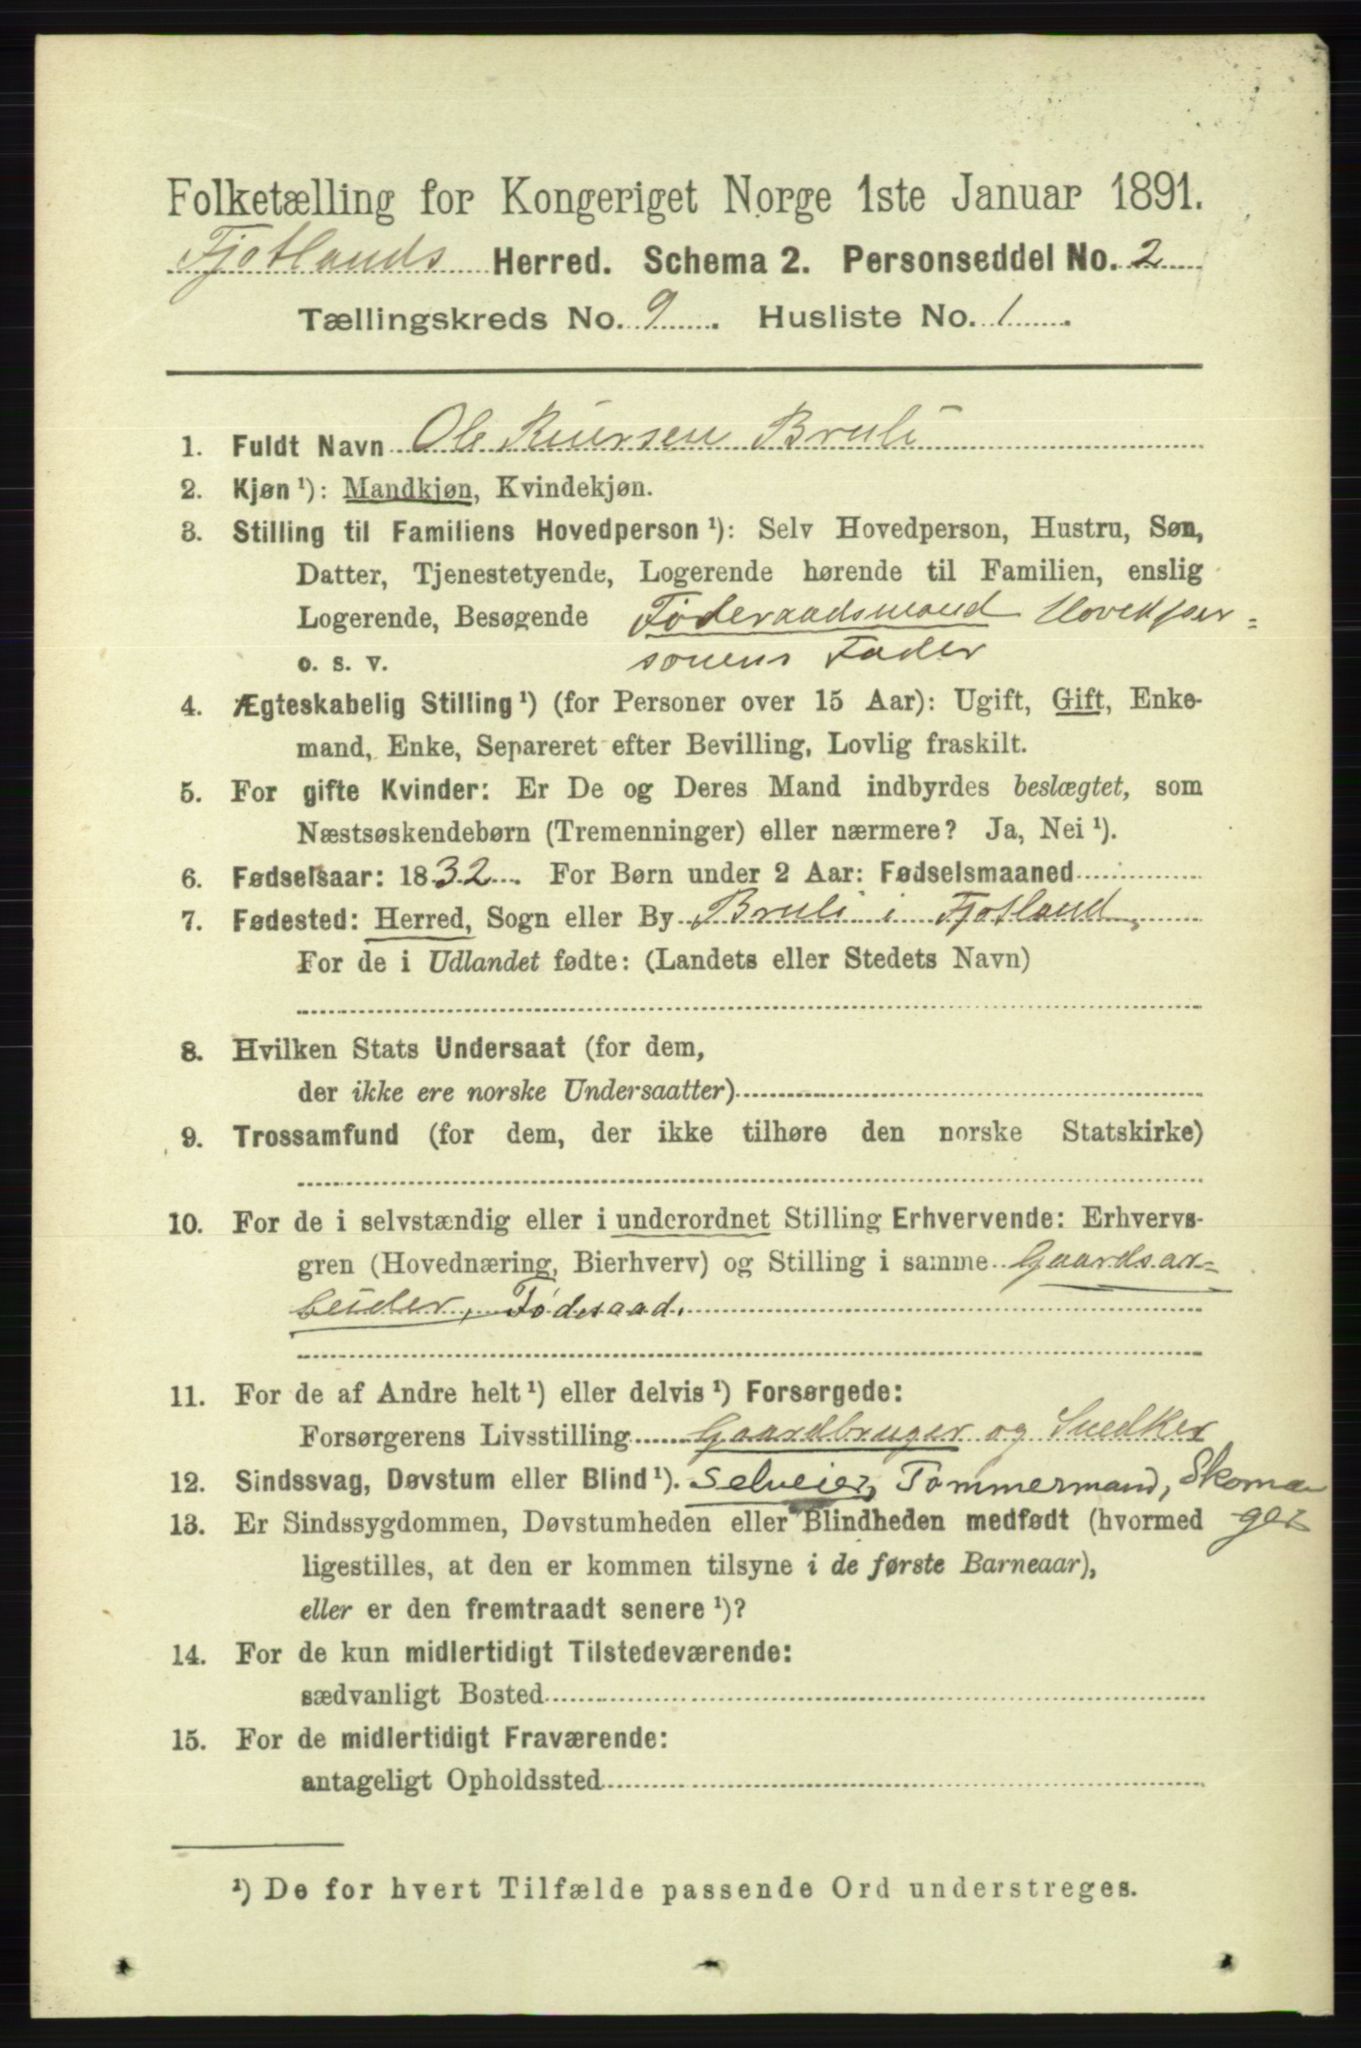 Folketælling for Kongeriget Norge 1ste Januar 1891.
Fjotlands Herred. Schema 2. Personseddel No. 2
Tællingskreds No. 9. Husliste No. 1.
1. Fuldt Navn Ole Reiersen Bruli
2. Kjøn ¹): Mandkjøn, Kvindekjøn.
3. Stilling til Familiens Hovedperson ¹): Selv Hovedperson, Hustru, Søn,
Datter, Tjenestetyende, Logerende hørende til Familien, enslig
Logerende, Besøgende Føderaadsmand Hovedper=
o. s. v. sonens Fader
4. Ægteskabelig Stilling ¹) (for Personer over 15 Aar): Ugift, Gift, Enke-
mand, Enke, Separeret efter Bevilling, Lovlig fraskilt.
5. For gifte Kvinder: Er De og Deres Mand indbyrdes beslægtet, som
Næstsøskendebørn (Tremenninger) eller nærmere? Ja, Nei ¹).
6. Fødselsaar: 1832. For Børn under 2 Aar: Fødselsmaaned
7. Fødested: Herred, Sogn eller By Bruli i Fjotland,
For de i Udlandet fødte: (Landets eller Stedets Navn)
8. Hvilken Stats Undersaat (for dem,
der ikke ere norske Undersaatter)
9. Trossamfund (for dem, der ikke tilhøre den norske Statskirke)
10. For de i selvstændig eller i underordnet Stilling Erhvervende: Erhvervs-
gren (Hovednæring, Bierhverv) og Stilling i samme Gaardsar=
beider, Føderaad.
11. For de af Andre helt ¹) eller delvis ¹) Forsørgede:
Forsørgerens Livsstilling Gaardbruger og Snedker
12. Sindssvag, Døvstum eller Blind ¹). Selveier, Tømmermand, Skoma
13. Er Sindssygdommen, Døvstumheden eller Blindheden medfødt (hvormed ger
ligestilles, at den er kommen tilsyne i de første Barneaar),
eller er den fremtraadt senere ¹)?
14. For de kun midlertidigt Tilstedeværende:
sædvanligt Bosted
15. For de midlertidigt Fraværende:
antageligt Opholdssted
¹) De for hvert Tilfælde passende Ord understreges.